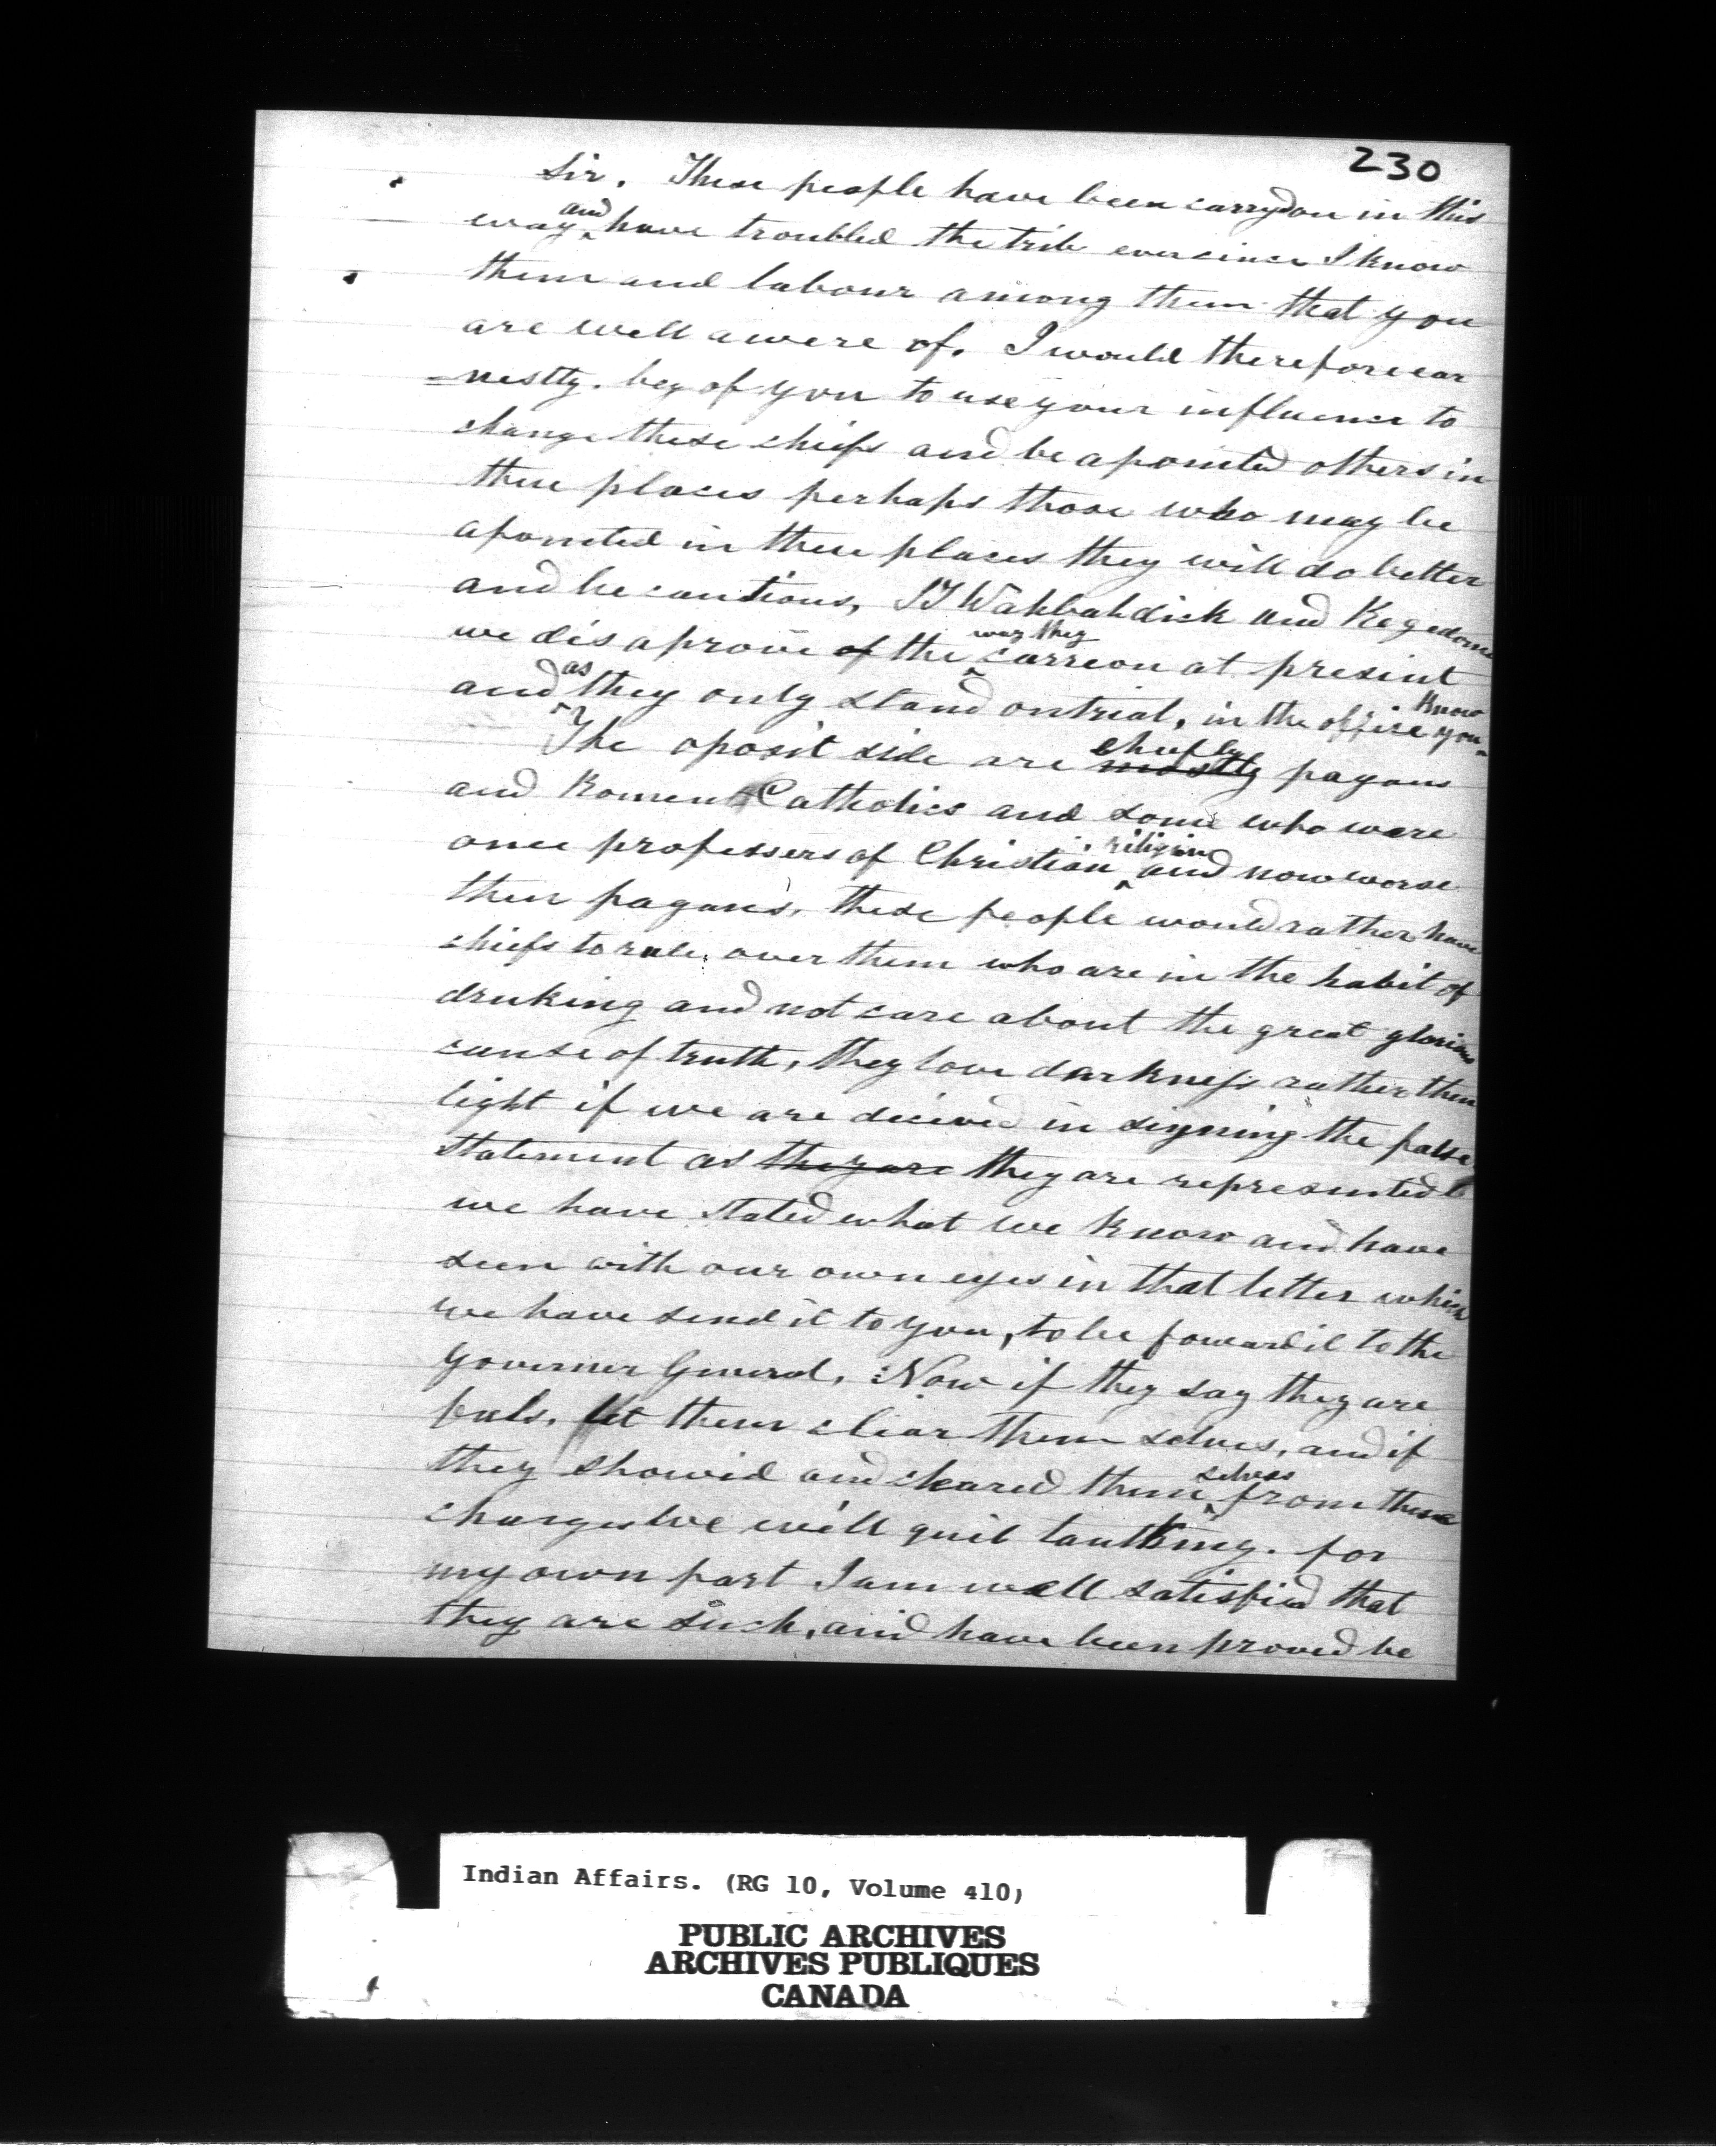 230
Sir. These people have been carrydon in this
way and have troubled the trib ever since I know
them and labour among them that you
are well awere of. I would therefore ear
=nestty. beg of you to use your influence to
change these chiefs and be apointed others in
thee places perhaps those who may be
apointed in thee places they will do better
and be cautious, JJ Wahbahdick and Kegedonce
we disaprove of the way they carreon at present
and as they only stand on trial, in the office you know
The oposit side are mostly chiefly pagans
and Romen Catholics and some who were
once professers of Christian riligion and now worse
then pagans, these people would rather have
chiefs to rule over them who are in the habit of
drinking and not care about the great glorious
cause of truth, they love darkness rather then
light if we are decived in signing the false
statement as they are they are represented
we have stated what we know and have
seen with our own eyes in that letter which
we have send it to you, to be fowardit to the
Governer General, Now if they say they are
fals, let them clear them selves, and if
they showed and cleared them selves from these
charges We will quit taulking. for
my own part I am well satisfied that
they are such, and have been proved be
Indian Affairs. (RG 10, Volume 410)
PUBLIC ARCHIVES
ARCHIVES PUBLIQUES
CANADA